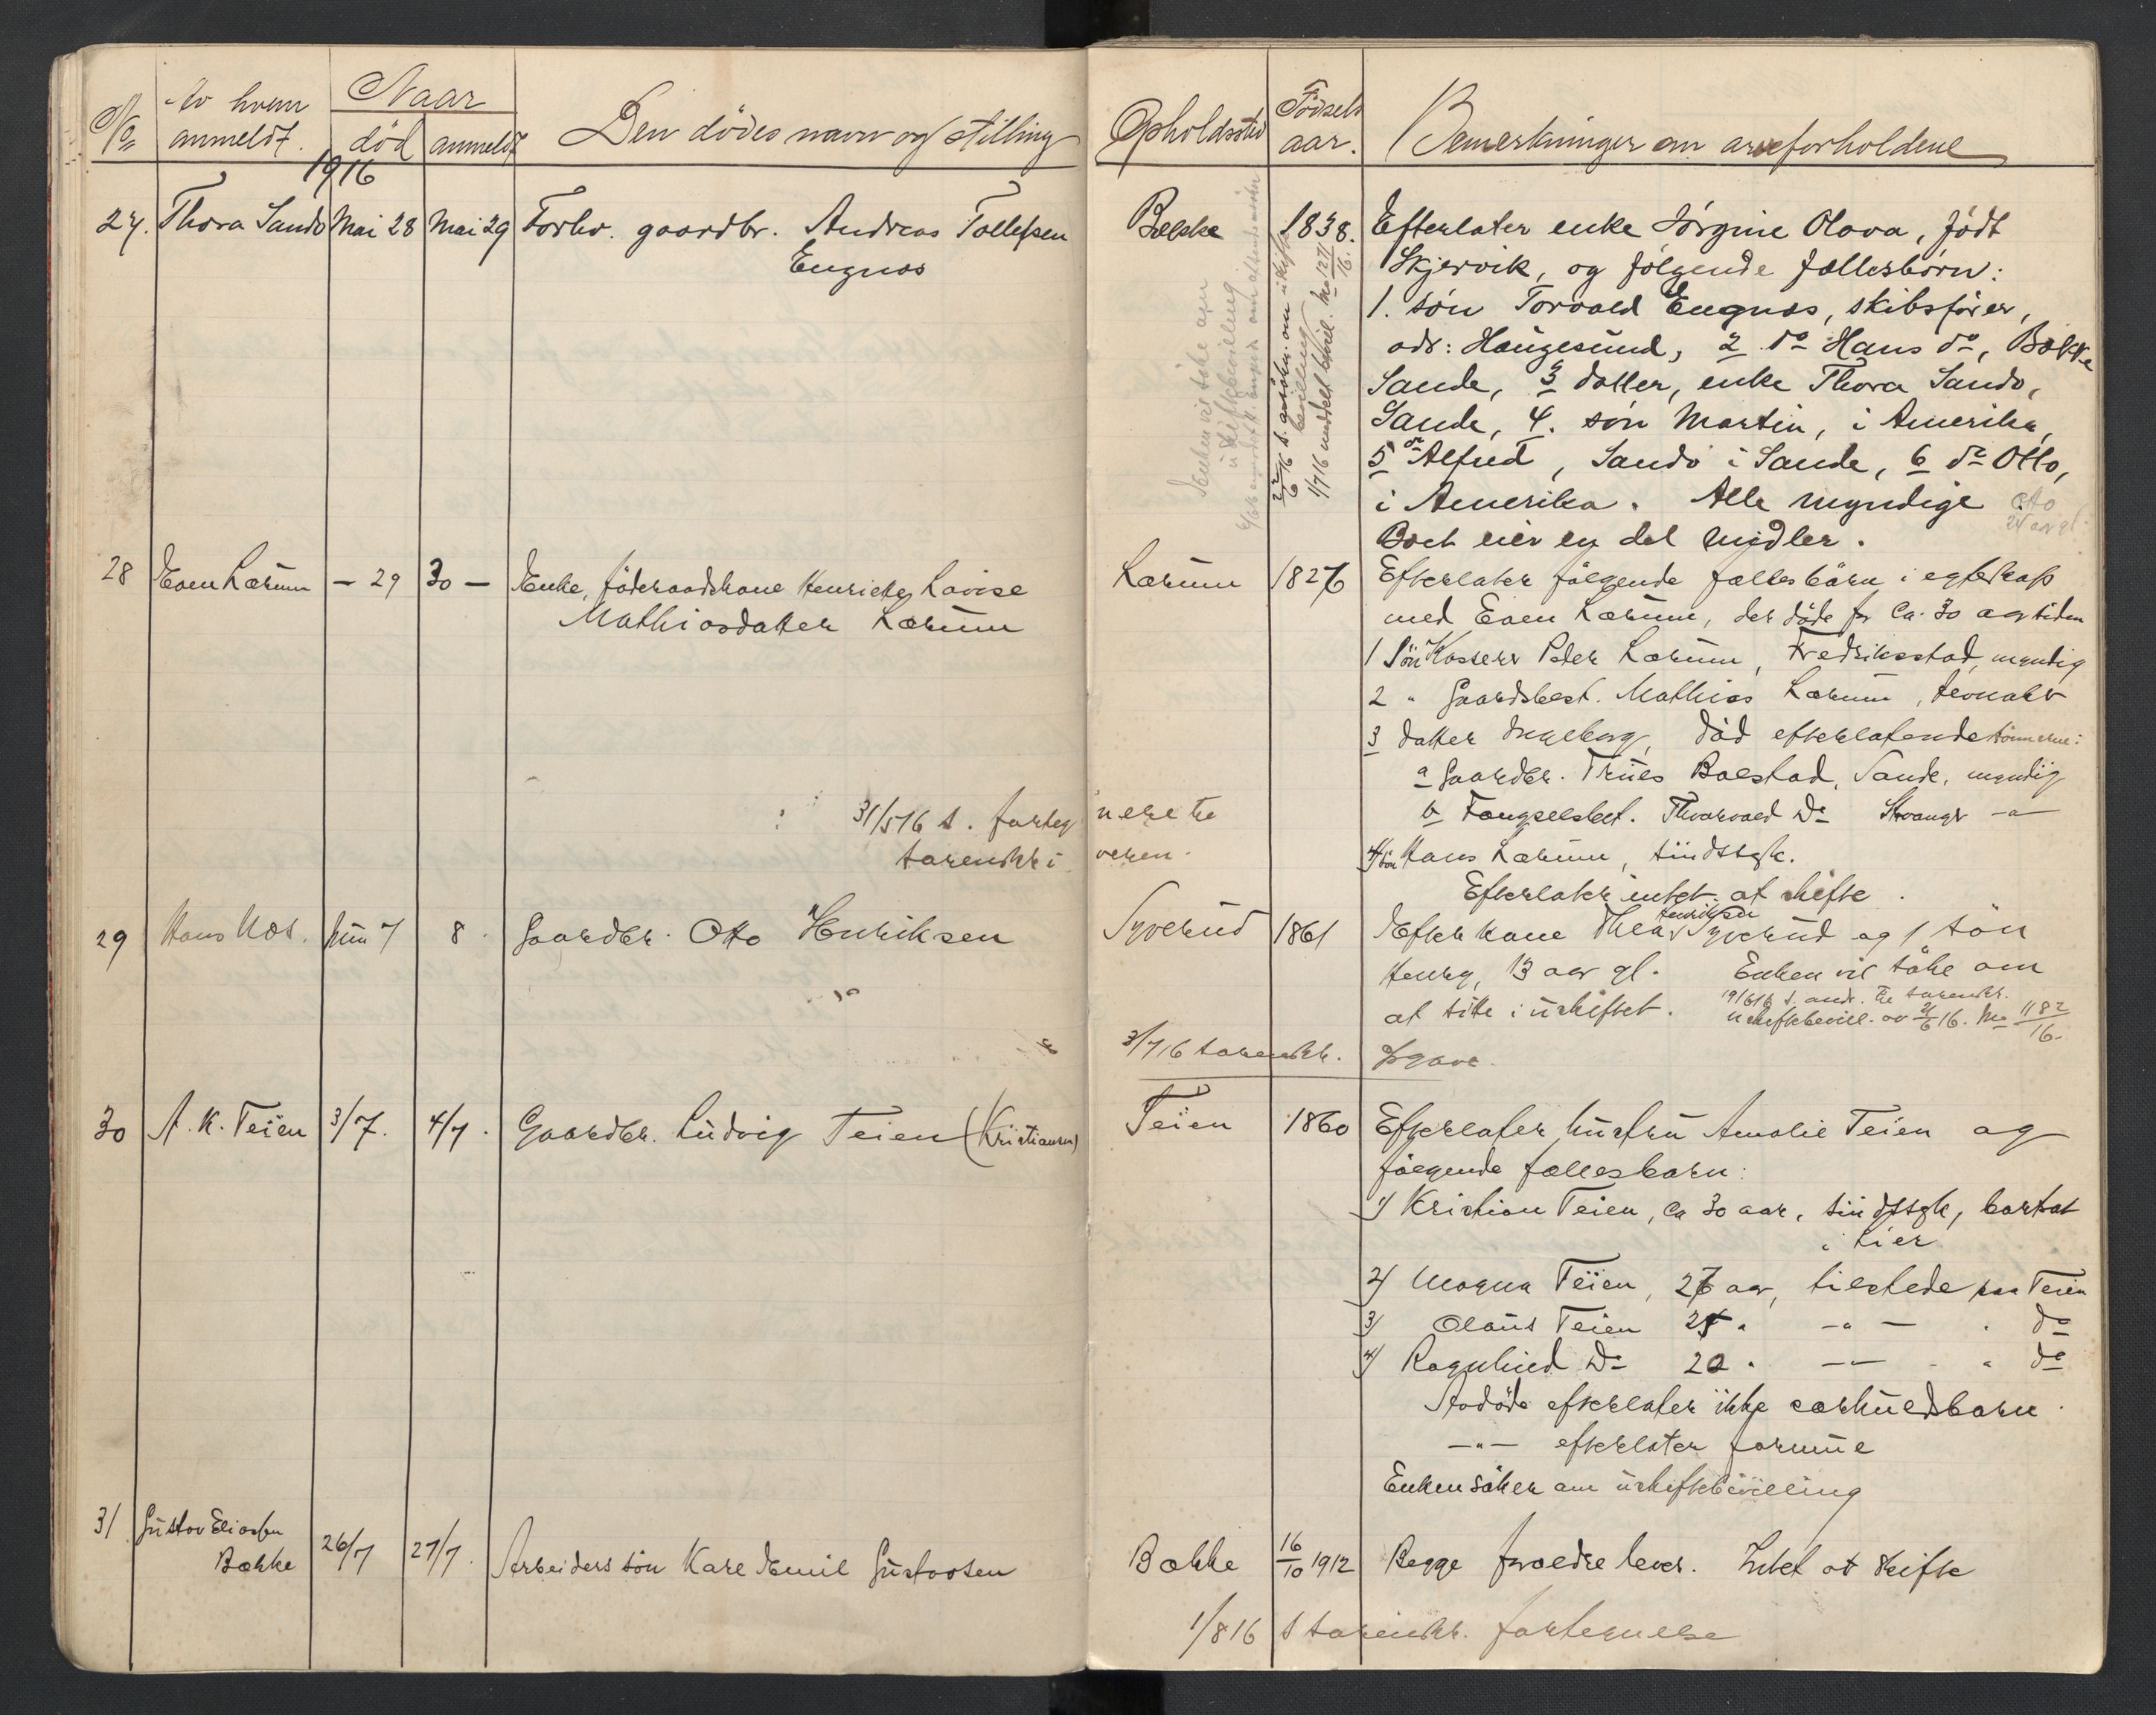 No Av hvem anmeldt. Naar død anmeldt Den dødes navn og stilling Opholdssted Fødsels aar. Bemerkninger om arveforholdene
1916
27. Thora Sando Mai 28 Mai 29 Forhv. gaardbr. Andreas Tollefsen Bække 1838. Efterlater enke Jørgine Olava, født
Engnæs Skjervik, og følgende fællesbørn:
1. søn Torvald Engnæs, skibsfører,
adr: Haugesund, 2 do Hans do, Bække
Sande, 3 datter, enke Thora Sando,
Sande, 4. søn Martin, i Amerika,
5 do Alfred, Sando i Sande, 6 do Otto,
i Amerika. Alle myndige Otto 24 aar gl.
Boet eier en del midler.
Enken vil søke om uskiftebevilling
1/7 16 meddelt bevil. No 1271/16.
28 Even Lærum - 29 30 - Enke, føderaadskone Henriette Lovise Lærum 1826 Efterlater følgende fællesbarn i egteskap
Mathiasdatter Lærum med Even Lærum, der døde for ca. 30 aar siden
1 Søn Kasserer Peder Lærum, Fredriksstad, myndig
2 " Gaardsbest. Mathias Lærum,
3 datter Ingeborg, død efterlatende sønnerne:
a Gaardbr. Truls Bolstad, Sande, myndig
b Fængselsbet. Thorvald Do Stavanger -"-
31/5 16 s. forteg nelse til
sorenskri veren.
4/ søn Hans Lærum, sindssyk.
Efterlater intet at skifte.
29 Hans Næs. Juni 7 8. Gaardbr. Otto Henriksen Syverud 1861 Efter kone Thea Henriksen Syverud og 1 søn
Henry, 13 aar gl. Enken vil søke om
at sitte i uskiftet. 19/6 16 s. andr. til sorenskr.
uskiftebevill. av 21/6 16. No 1182/16.
3/7 16 sorenskr. opgave.
30 A. K. Teien 3/7. 4/7. Gaardbr. Ludvig Teien (Kristiansen) Teien 1860 Efterlater hustru Amalie Teien og
følgende fællesbarn:
1) Kristian Teien, ca 30 aar, sindssyk, bortsat
i Lier
2) Magna Teien, 26 aar, tilstede paa Teien
3) Olaus Teien 25 " -"- " do
4) Ragnhild Do 20 " -"- " do
Avdøde efterlater ikke særkuldsbarn.
-"- efterlater formue
Enken søker om uskiftebevilling
31 Gustav Eliassen Bække 26/7 27/7. Arbeiders søn Karl Emil Gustavsen Bække 16/10 1912 Begge forældre lever. Intet at skifte
1/8 16 s sorenskr. fortegnelse